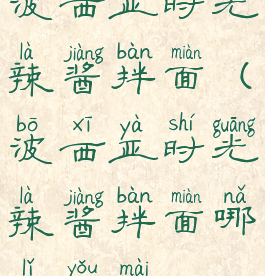 波西亚时光
là jiàng bàn miàn
辣酱拌面（
bō xī yà shí guāng
波西亚时光
là jiàng bàn miàn nǎ
辣酱拌面哪
lǐ yǒu mài